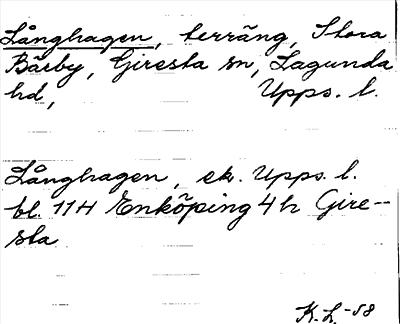 Långhagen, terräng, Stora
Bärby, Giresta sn, Lagunda
hd, Upps. l.
Långhagen, ek. Upps. l.
bl. 11H Enköping 4h Gire-
sta
K. L. -58